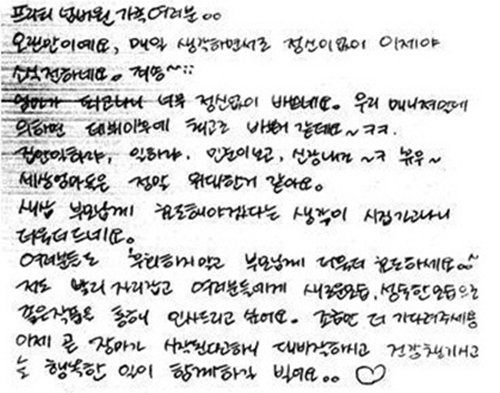 프리티 넘버원 가족 여러분..
오랜만이예요, 매일 생각하면서도 정신이없이 이제야
소식전하네요. 죄송~;;
엄마가 되고나니 너무 정신없이 바쁘네요. 우리 매니져언데
의하면 데뷔이후에 최고로 바뻐 같데요~ㅋㅋ.
집안일하랴, 일하랴. 민호이보고, 신랑내조~ㅋ 뷰우~
세상엄마들은 정말 위대한거 같아요.
새삼 부모님께 효도해야겠다는 생각이 시집가고나니
더욱더 드네요.
여러분들도 후회하지말고 부모님께 더욱더 효도하세요..^
저도 빨리 자리잡고 여러분들에게 새로운모습, 성숙한모습으로
좋은작품을 통해 인사드리고 싶어요. 조금만 더 기다려주세용
이제 곧 장마가 시작된다고하니 대비잘하시고 건강챙기시고
늘 행복한 일이 함께하길 빌어요.. ♡